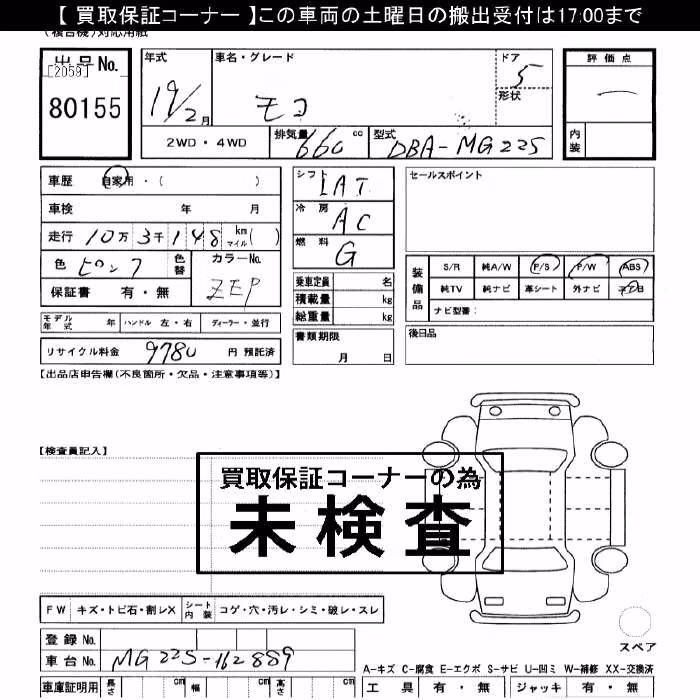 【 買取保証コーナー 】この車両の土曜日の搬出受付は17:00まで
(複合機)対応用紙
出品No.
[2059]
80155
年式 車名・グレード ドア
19/2月 モコ 5
形状
評価点
一
内装
2WD・4WD 排気量 660 cc 型式 DBA-MG22S
車歴 自家用・( )
車検 年 月
走行 10万 3千 1 4 8 km マイル ( )
色 ピンク 色替 カラーNo.
ZEP
保証書 有・無
モデル年式 年 ハンドル 左・右 ディーラー・並行
リサイクル料金 9780 円 預託済
シフト IAT
冷房 AC
燃料 G
乗車定員 名
積載量 kg
総重量 kg
書類期限
月 日
セールスポイント
装備品
S/R 純A/W P/S P/W ABS
純TV 純ナビ 革シート 外ナビ
ナビ型番:
後日品
【出品店申告欄(不良箇所・欠品・注意事項等)】
【検査員記入】
買取保証コーナーの為
未検査
FW キズ・トビ石・割レX シート内装 コゲ・穴・汚レ・シミ・破レ・スレ
スペア
登録No.
車台No. MG22S-162889
A-キズ C-腐食 E-エクボ S-サビ U-凹ミ W-補修 XX-交換済
車庫証明用 長さ cm 幅 cm 高さ cm
工具 有・無 ジャッキ 有・無